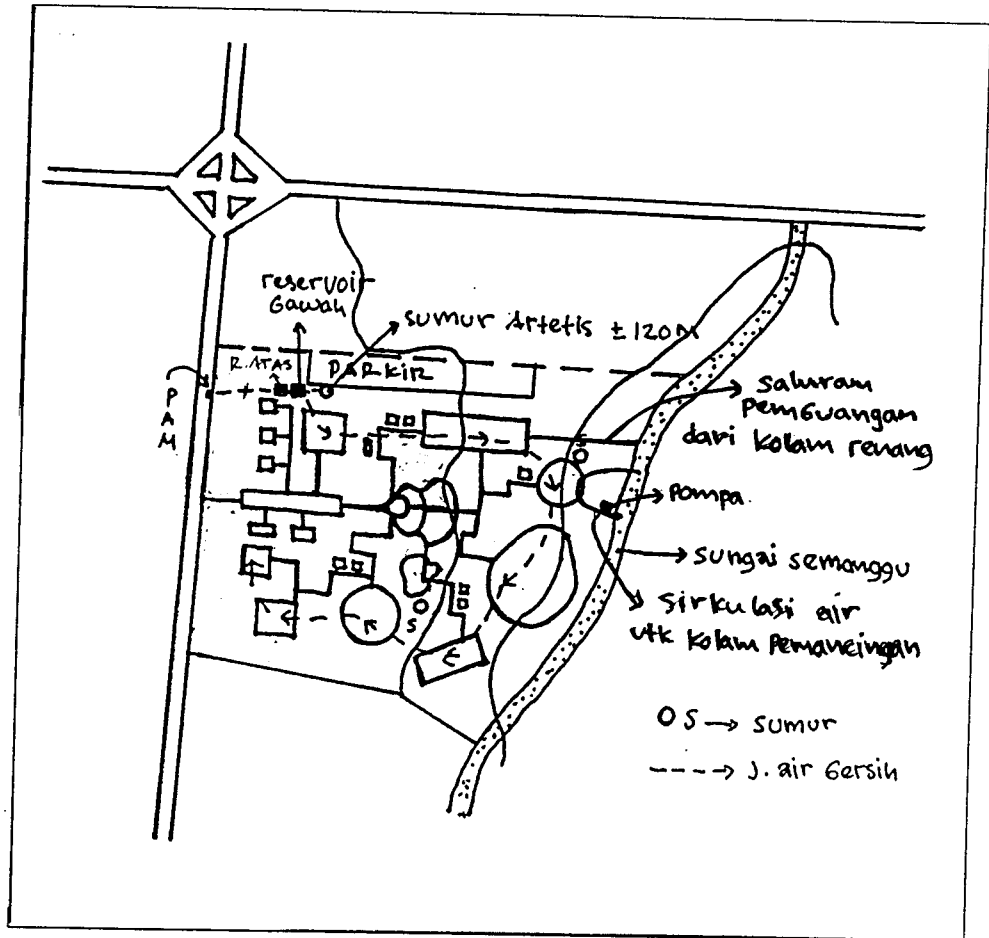 reservoir
bawah
sumur Artetis ± 120 M
R. ATAS
PARKIR
PAM
saluram
Pembuangan
dari kolam renang
S
Pompa
S
sungai semanggu
sirkulasi air
utk kolam Pemancingan
O S → sumur
----→ J. air bersih